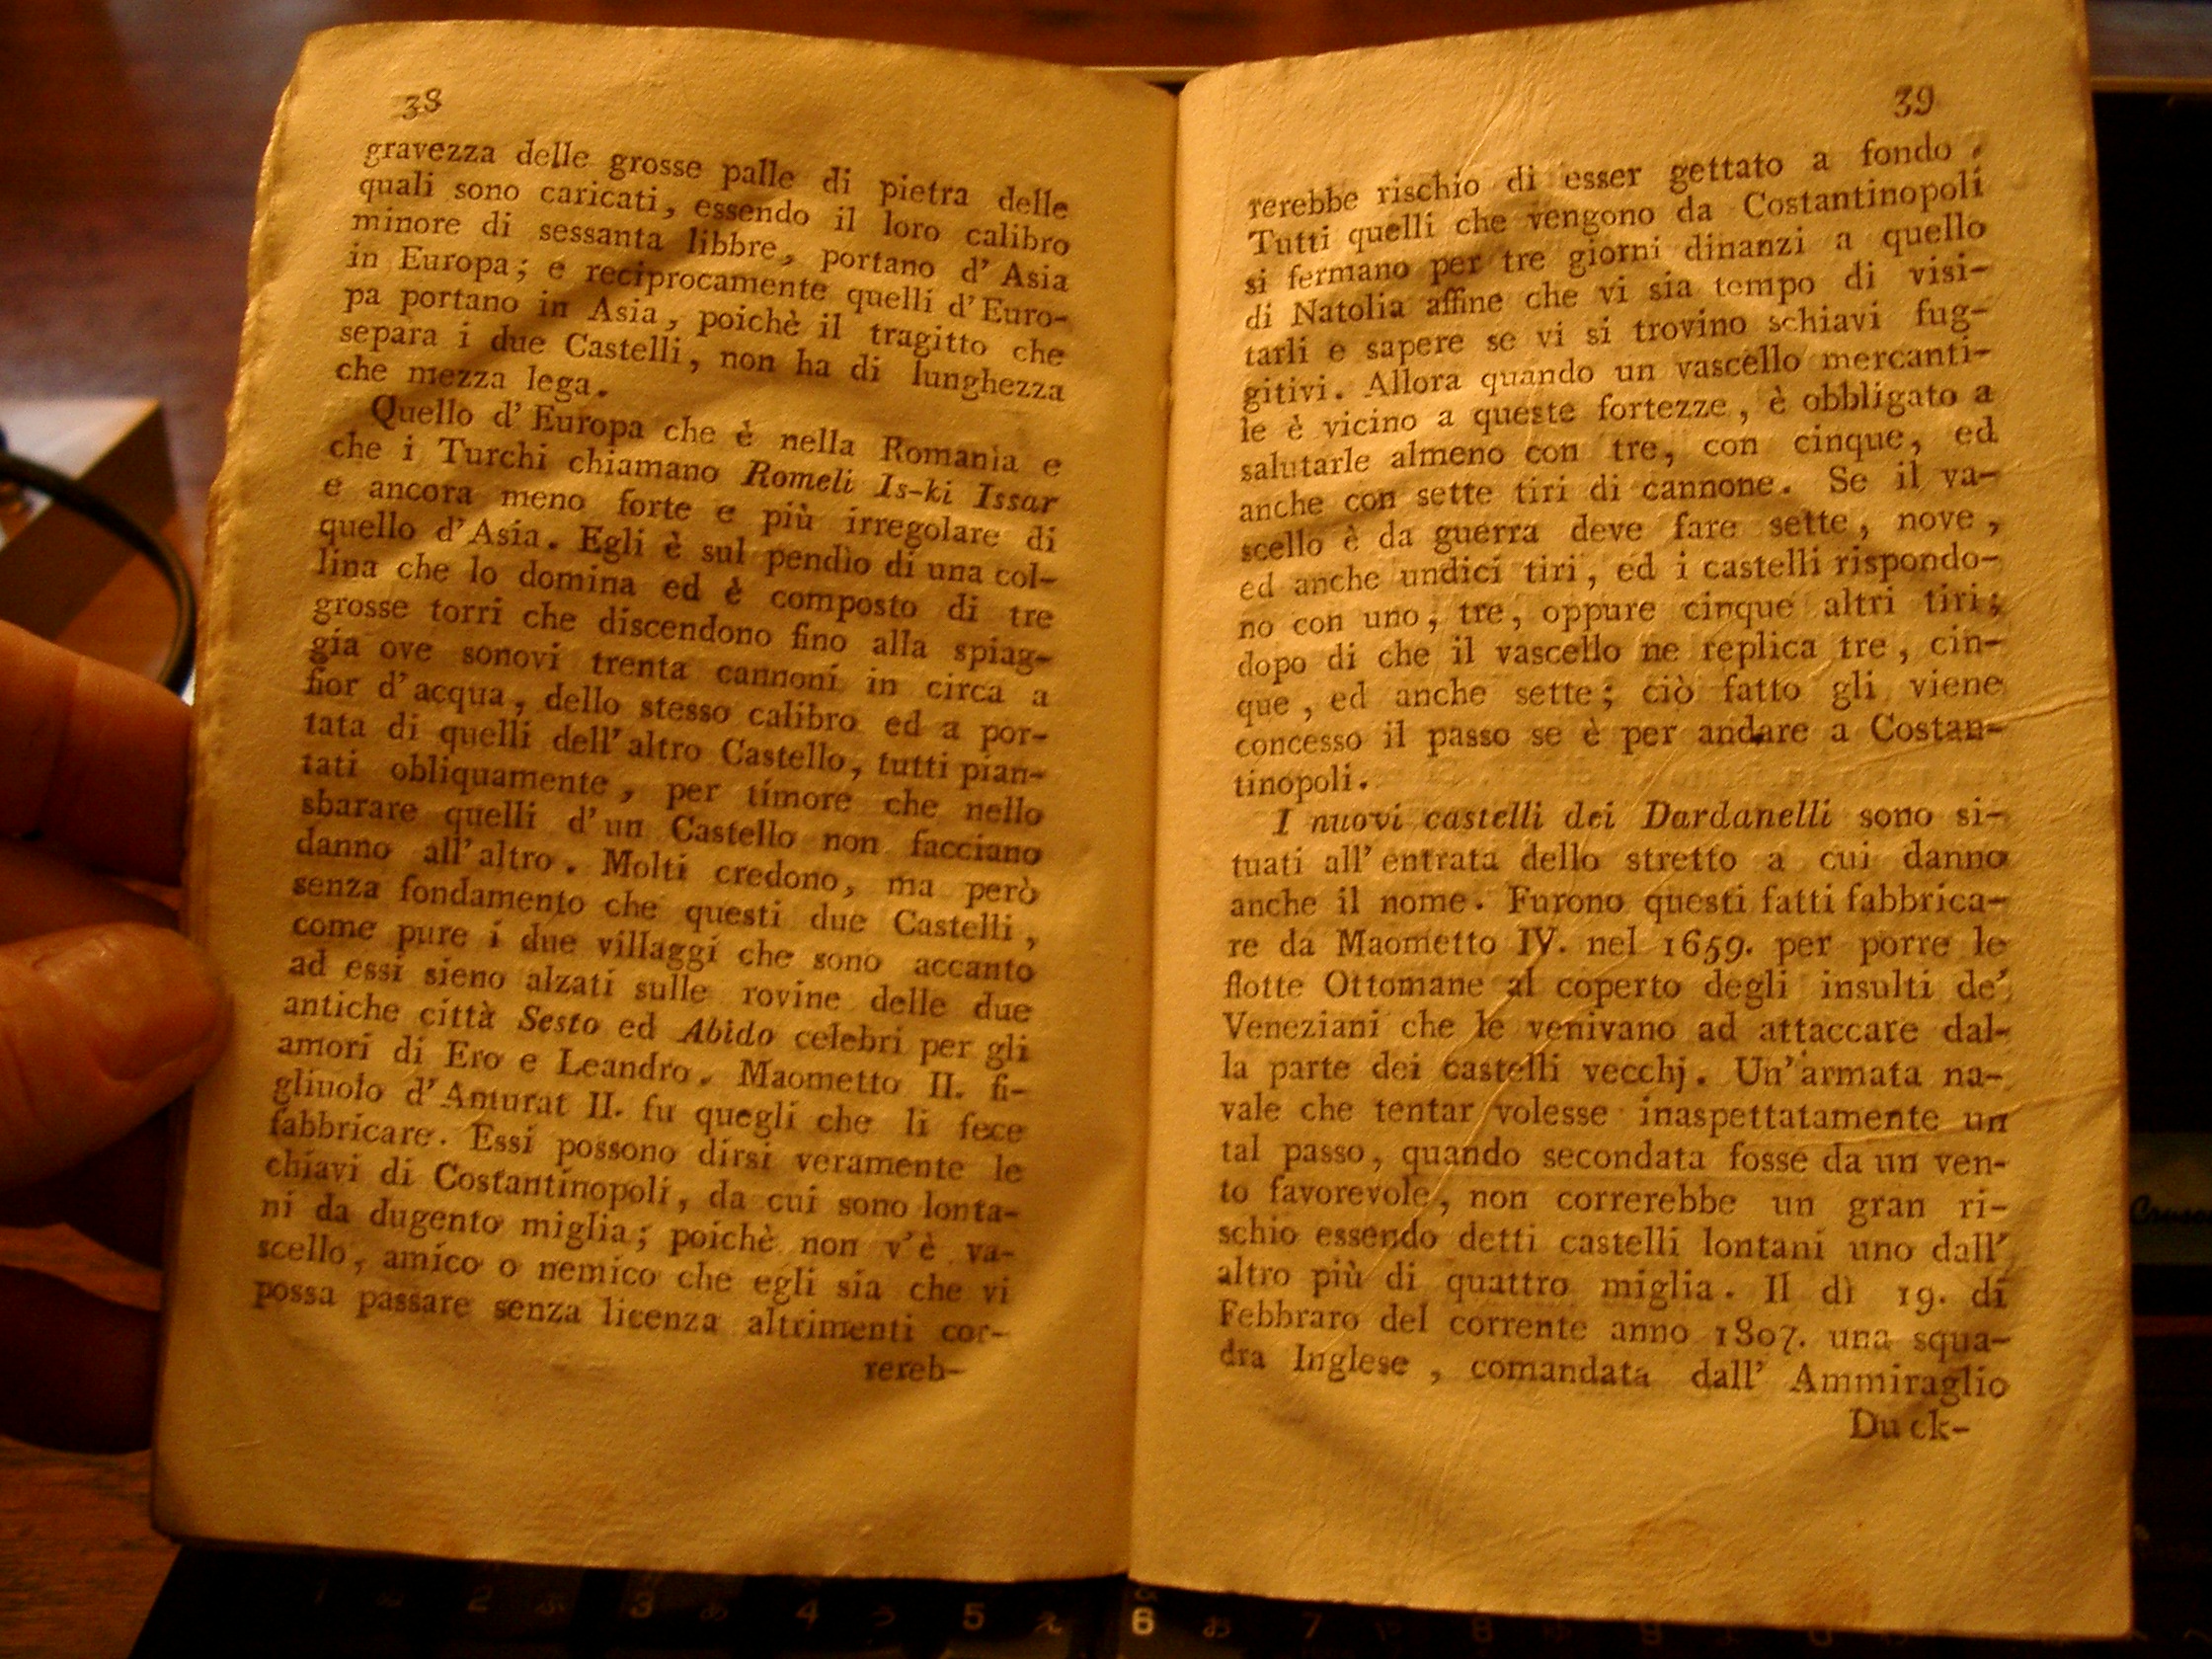 38
gravezza delle grosse palle di pietra delle
quali sono caricati, essendo il loro calibro
minore di sessanta libbre, portano d' Asia
in Europa; e reciprocamente quelli d'Euro-
pa portano in Asia, poichè il tragitto che
separa i due Castelli, non ha di lunghezza
che mezza lega.
Quello d' Europa che è nella Romania e
che i Turchi chiamano Romeli Is-ki Issar
e ancora meno forte e più irregolare di
quello d'Asia. Egli è sul pendio di una col-
lina che lo domina ed è composto di tre
grosse torri che discendono fino alla spiag-
gia ove sonovi trenta cannoni in circa a
fior d'acqua, dello stesso calibro ed a por-
tata di quelli dell'altro Castello, tutti pian-
tati obliquamente, per timore che nello
sbarare quelli d'un Castello non facciano
danno all'altro. Molti credono, ma però
senza fondamento che questi due Castelli,
come pure i due villaggi che sono accanto
ad essi sieno alzati sulle rovine delle due
antiche città Sesto ed Abido celebri per gli
amori di Ero e Leandro. Maometto II. fi-
gliuolo d'Amurat II. fu quegli che li fece
fabbricare. Essi possono dirsi veramente le
chiavi di Costantinopoli, da cui sono lonta-
ni da dugento miglia; poichè non v'è va-
scello, amico o nemico che egli sia che vi
possa passare senza licenza altrimenti cor-
rereb-
39
rerebbe rischio di esser gettato a fondo.
Tutti quelli che vengono da Costantinopoli
si fermano per tre giorni dinanzi a quello
di Natolia affine che vi sia tempo di visi-
tarli e sapere se vi si trovino schiavi fug-
gitivi. Allora quando un vascello mercanti-
le è vicino a queste fortezze, è obbligato a
salutarle almeno con tre, con cinque, ed
anche con sette tiri di cannone. Se il va-
scello è da guerra deve fare sette, nove,
ed anche undici tiri, ed i castelli rispondo-
no con uno, tre, oppure cinque altri tiri;
dopo di che il vascello ne replica tre, cin-
que, ed anche sette; ciò fatto gli viene
concesso il passo se è per andare a Costan-
tinopoli.
I nuovi castelli dei Dardanelli sono si-
tuati all'entrata dello stretto a cui danno
anche il nome. Furono questi fatti fabbrica-
re da Maometto IV. nel 1659. per porre le
flotte Ottomane al coperto degli insulti de'
Veneziani che le venivano ad attaccare dal-
la parte dei castelli vecchj. Un'armata na-
vale che tentar volesse inaspettatamente un
tal passo, quando secondata fosse da un ven-
to favorevole, non correrebbe un gran ri-
schio essendo detti castelli lontani uno dall'
altro più di quattro miglia. Il dì 19. di
Febbraro del corrente anno 1807. una squa-
dra Inglese, comandata dall' Ammiraglio
Duck-
1 2 3 4 5 6 7 8